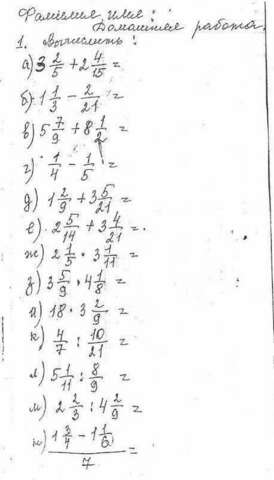 Фамилия имя:
Домашняя работа.
1. Вычислить:
а) 3 2/5 + 2 4/15 =
б) 1 1/3 - 2/21 =
в) 5 7/9 + 8 1/2 =
г) 1/4 - 1/5 =
д) 1 2/9 + 3 5/21 =
е) 2 5/14 + 3 4/21 =
ж) 2 1/5 · 3 1/11 =
з) 3 5/9 · 4 1/8 =
и) 18 · 3 2/9 =
к) 4/7 : 10/21 =
л) 5 1/11 : 8/9 =
м) 2 2/3 : 4 2/9 =
н) (1 3/4 - 1 1/6)/7 =